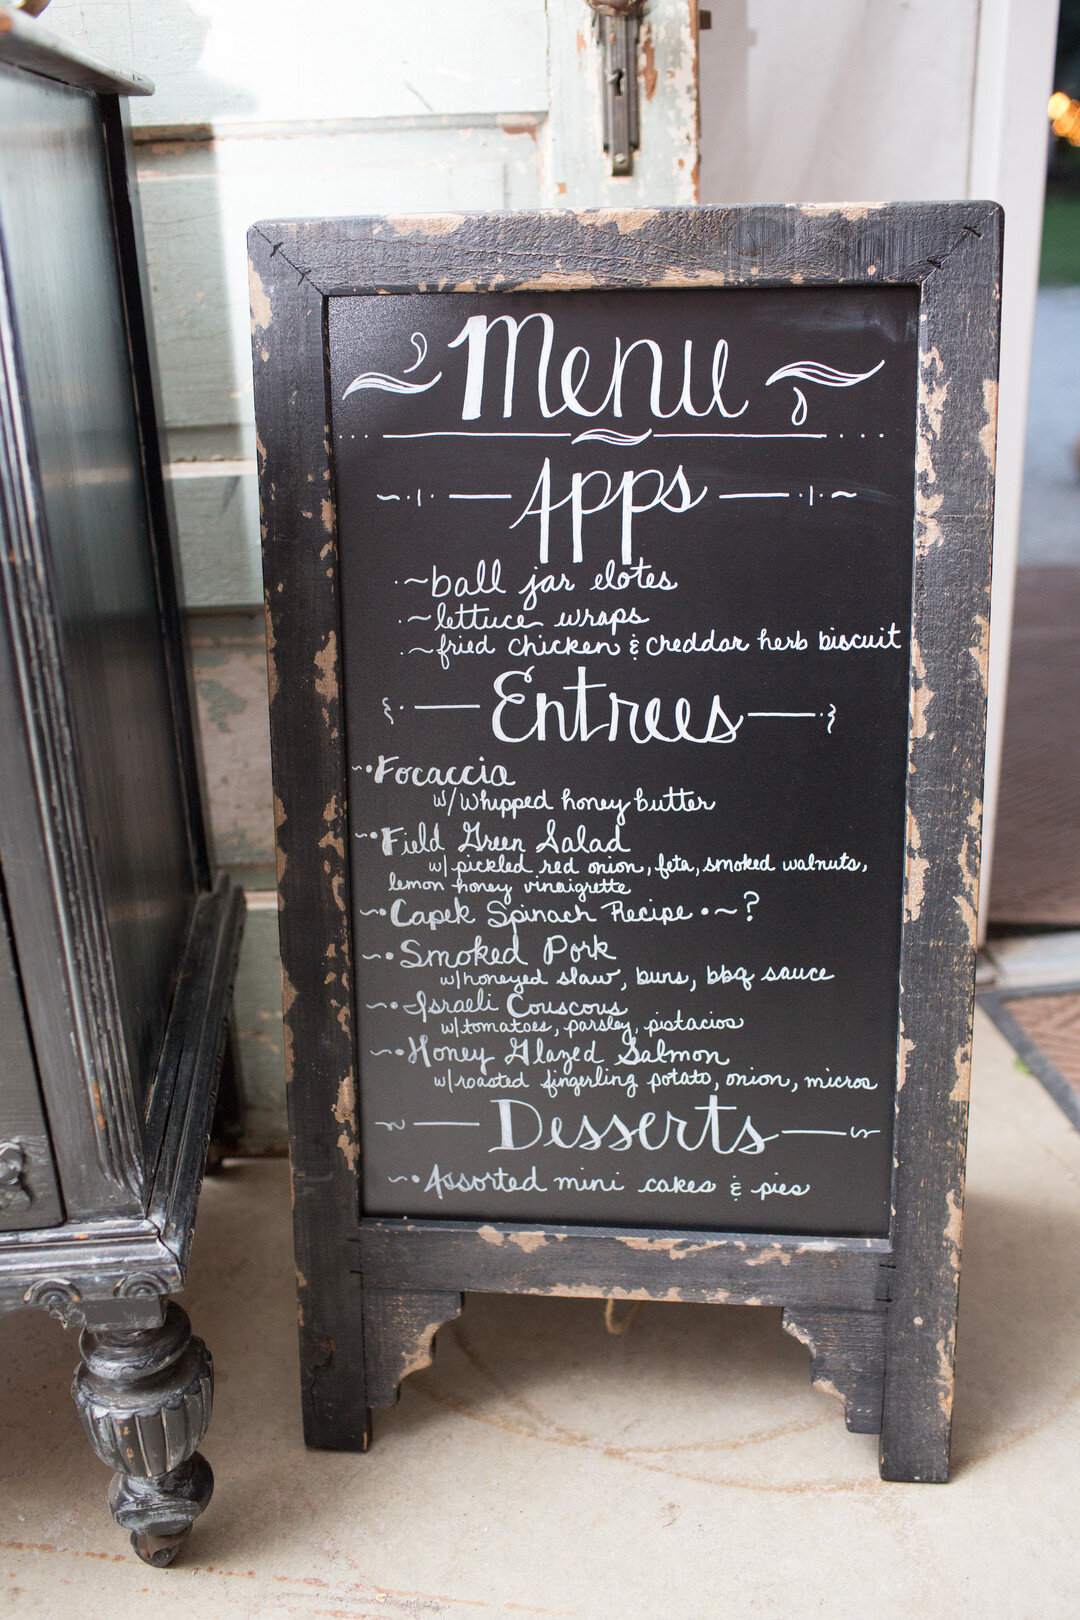 Menu
Apps
ball jar elotes
lettuce wraps
fried chicken & creddar herb biscuit
Entrees
Focaccia
w/ whipped honey butter
Field Green Salad
w/ pickled red onion, feta, smoked walnuts,
lemon honey vinaigrette
Capek Spinach Recipe • ~ ?
Smoked Pork
w/ honeyed slaw, buns, bbq sauce
Israeli Couscous
w/ tomatoes, parsley, pistacios
Honey Glazed Salmon
w/ roasted fingerling potato, onion, micros
Desserts
Assorted mini cakes & pies